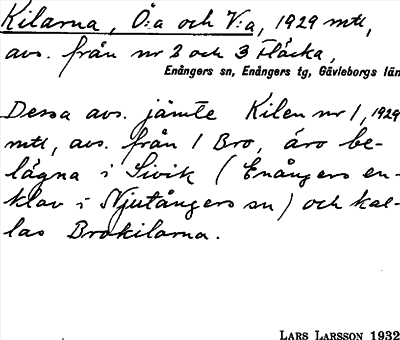 Kilarna, Ö:a och V:a, 1929 mtl,
avs. från nr 2 och 3 Fläcka,
Enångers sn, Enångers tg, Gävleborgs län
Dessa avs. jämte Kilen nr 1, 1929
mtl, avs. från 1 Bro, äro be-
lägna i Sivik (Enångers en-
klav i Njutångers sn) och kal-
las Brokilarna.
LARS LARSSON 1932